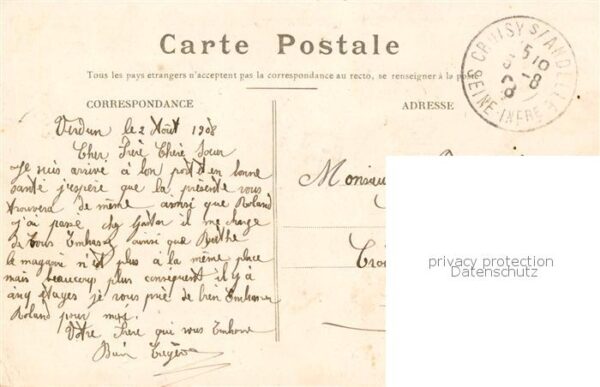 Carte Postale
Tous les pays etrangers n'acceptent pas la correspondance au recto, se renseigner à la poste
CROISY S/ANDELLE
5-10
3-8
08
SEINE-INFRE
CORRESPONDANCE
ADRESSE
Verdun le 2 Août 1908
Cher Frère Chère Sœur
Je suis arrivé à bon port et en bonne
santé j'espère que la présente vous
trouvera de même ainsi que Roland
j'ai passé chez Gaston il me charge
de vous Embrasser ainsi que Berthe
le magasin n'est plus à la même place
mais beaucoup plus conséquent il y a
cinq étages je vous prie de bien Embrasser
Roland pour moi.
Votre Frère qui vous Embrasse
Bien
Monsieur
Croi
privacy protection
Datenschutz